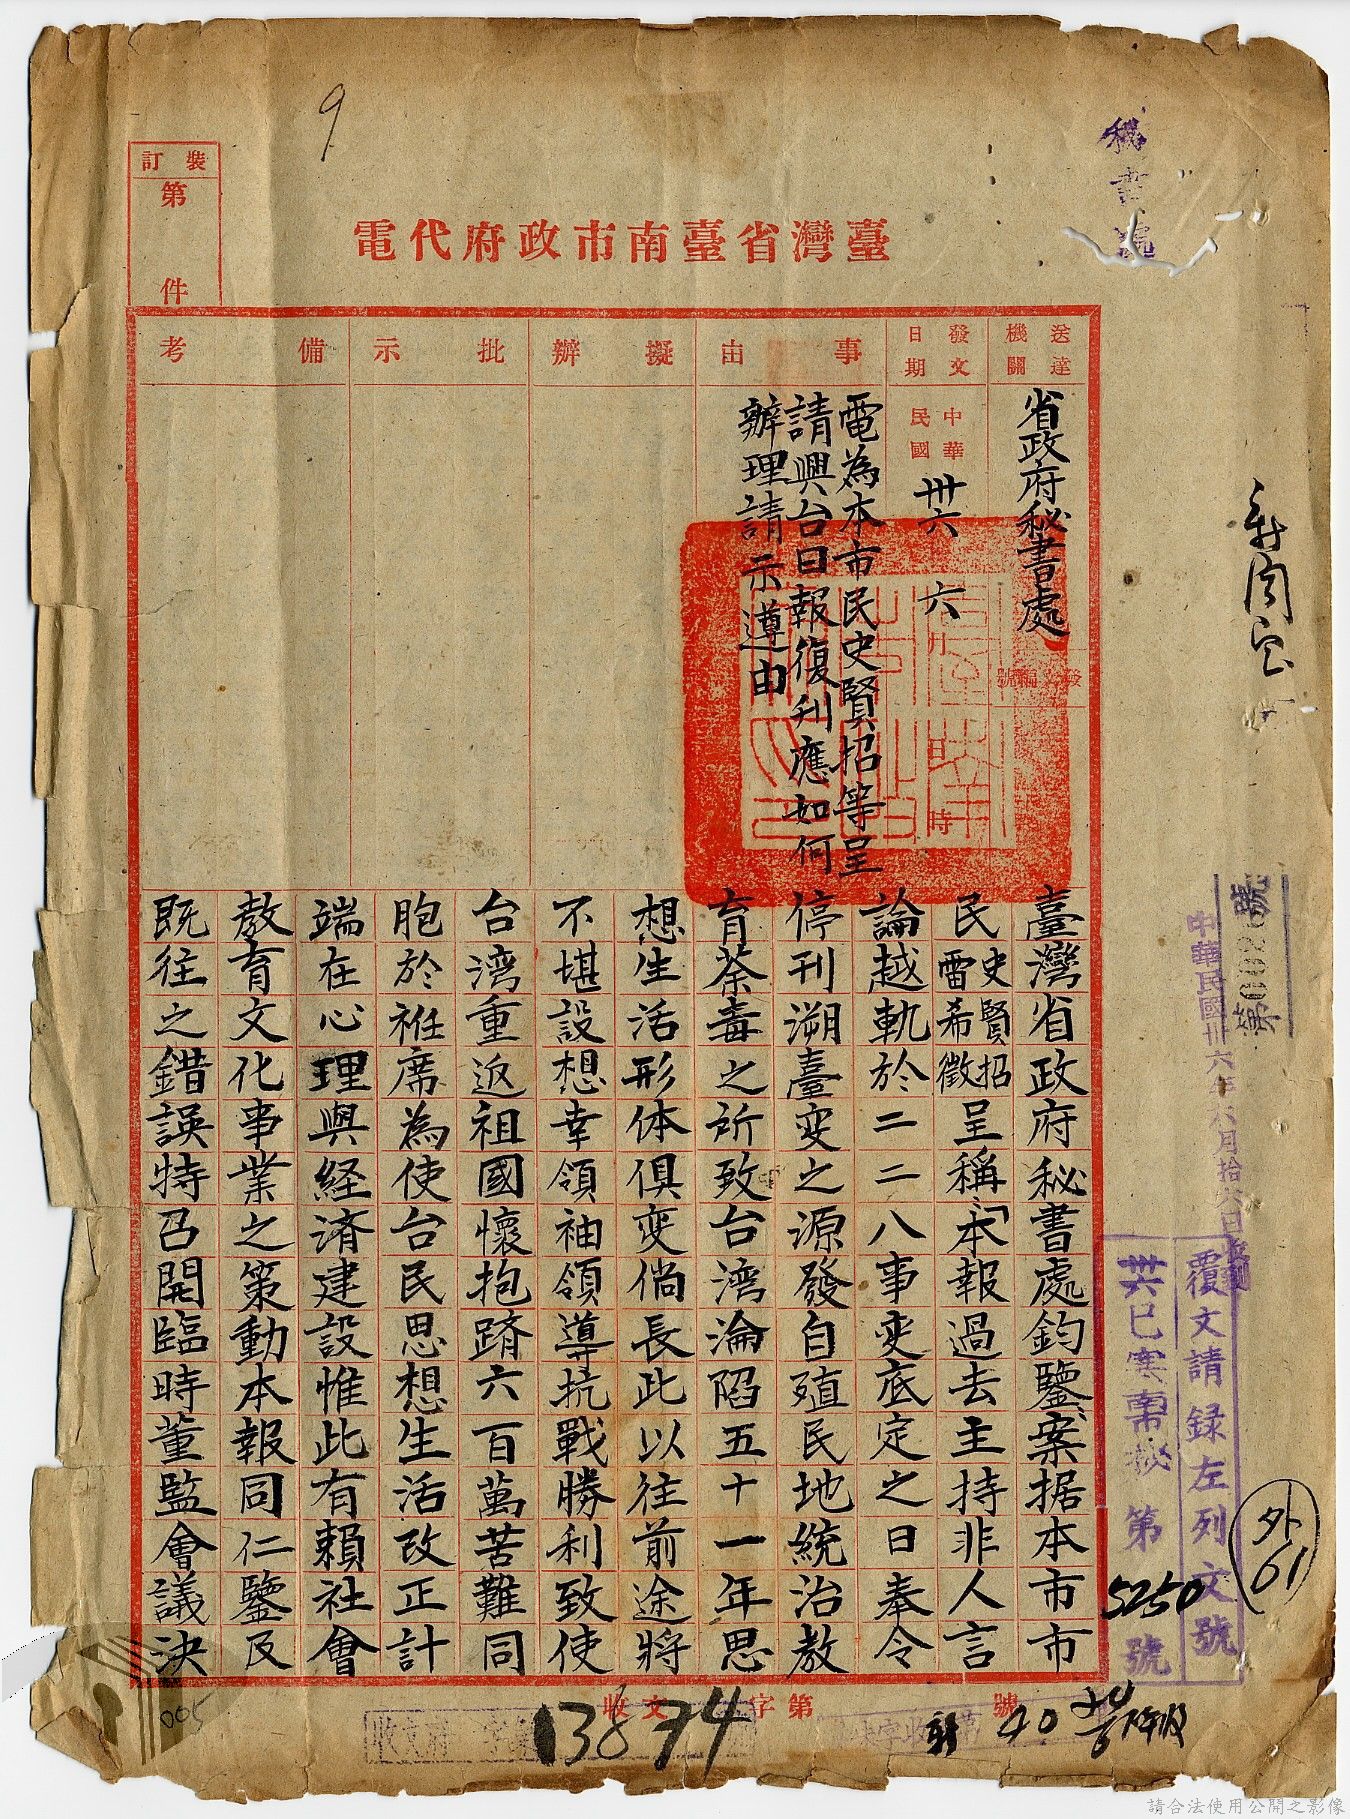 9
秘書處
裝訂
第 件
臺灣省臺南市政府代電
送達機關
發文日期
事由
擬辦
批示
備考
省政府秘書處
中華民國卅六 六月 日 時
發文編號
電為本市民史賢招等呈
請興台日報復刊應如何
辦理請示遵由
臺灣省政府秘書處鈞鑒案据本市市
民史賢招雷希徵呈稱「本報過去主持非人言
論越軌於二二八事変底定之日奉令
停刊溯臺変之源發自殖民地統治教
育荼毒之所致台湾淪陷五十一年思
想生活形体俱変倘長此以往前途將
不堪設想幸領袖領導抗戰勝利致使
台湾重返祖國懷抱躋六百萬苦難同
胞於袵席為使台民思想生活改正計
端在心理與経済建設惟此有賴社會
教育文化事業之策動本報同仁鑒及
既往之錯誤特召開臨時董監會議決
第0002號
中華民國卅六年六月拾六日收到
覆文請録左列文號
卅六巳寒南秘第5250號
外61
收文 字第 號
13874
40
005
請合法使用公開之影像